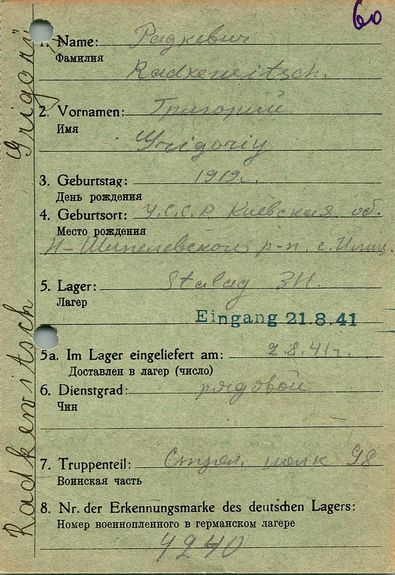 60
1. Name: Радкевич
Фамилия
Radxeweitsch.
2. Vornamen: Григорий
Имя
Grigoriy
3. Geburtstag: 1919г.
День рождения
4. Geburtsort: У.С.С.Р Киевская об.
Место рождения
р-н. с.
5. Lager: Stalag 3H.
Лагер
Eingang 21.8.41
5a. Im Lager eingeliefert am: 2 8.41г.
Доставлен в лагер (число)
6. Dienstgrad: рядовой
Чин
7. Truppenteil: Стрел. полк 98
Воинская часть
8. Nr. der Erkennungsmarke des deutschen Lagers:
Номер военнопленного в германском лагере
4240
Radkewitsch Grigorij